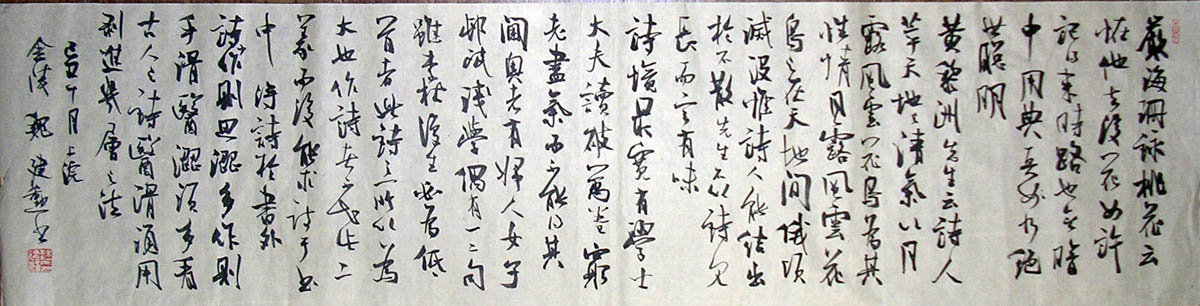 嚴海珊詠桃花云
怪他去後花如許
記得来時路也無暗
中用典真乃絕
世聰明
黃黎洲先生云詩人
萃天地之清氣以月
露風雲花鳥為其
性情月露風雲花
鳥之在天地間俄頃
滅沒惟詩人能結之
於不散先生不以詩見
長而言有味
詩境最寬有學士
大夫讀破萬卷窮
老盡氣而不能得其
閫奧者有婦人女子
邨氓淺學偶有一二句
雖李杜復生必為低
首者此詩之所以為
大也作詩者必知此二
義而後能求詩于書
中得詩於書外
詩少作則思澀多作則
手滑醫澀須多看
古人之詩醫滑須用
剝進幾層之法
十月上浣
金陵魏建